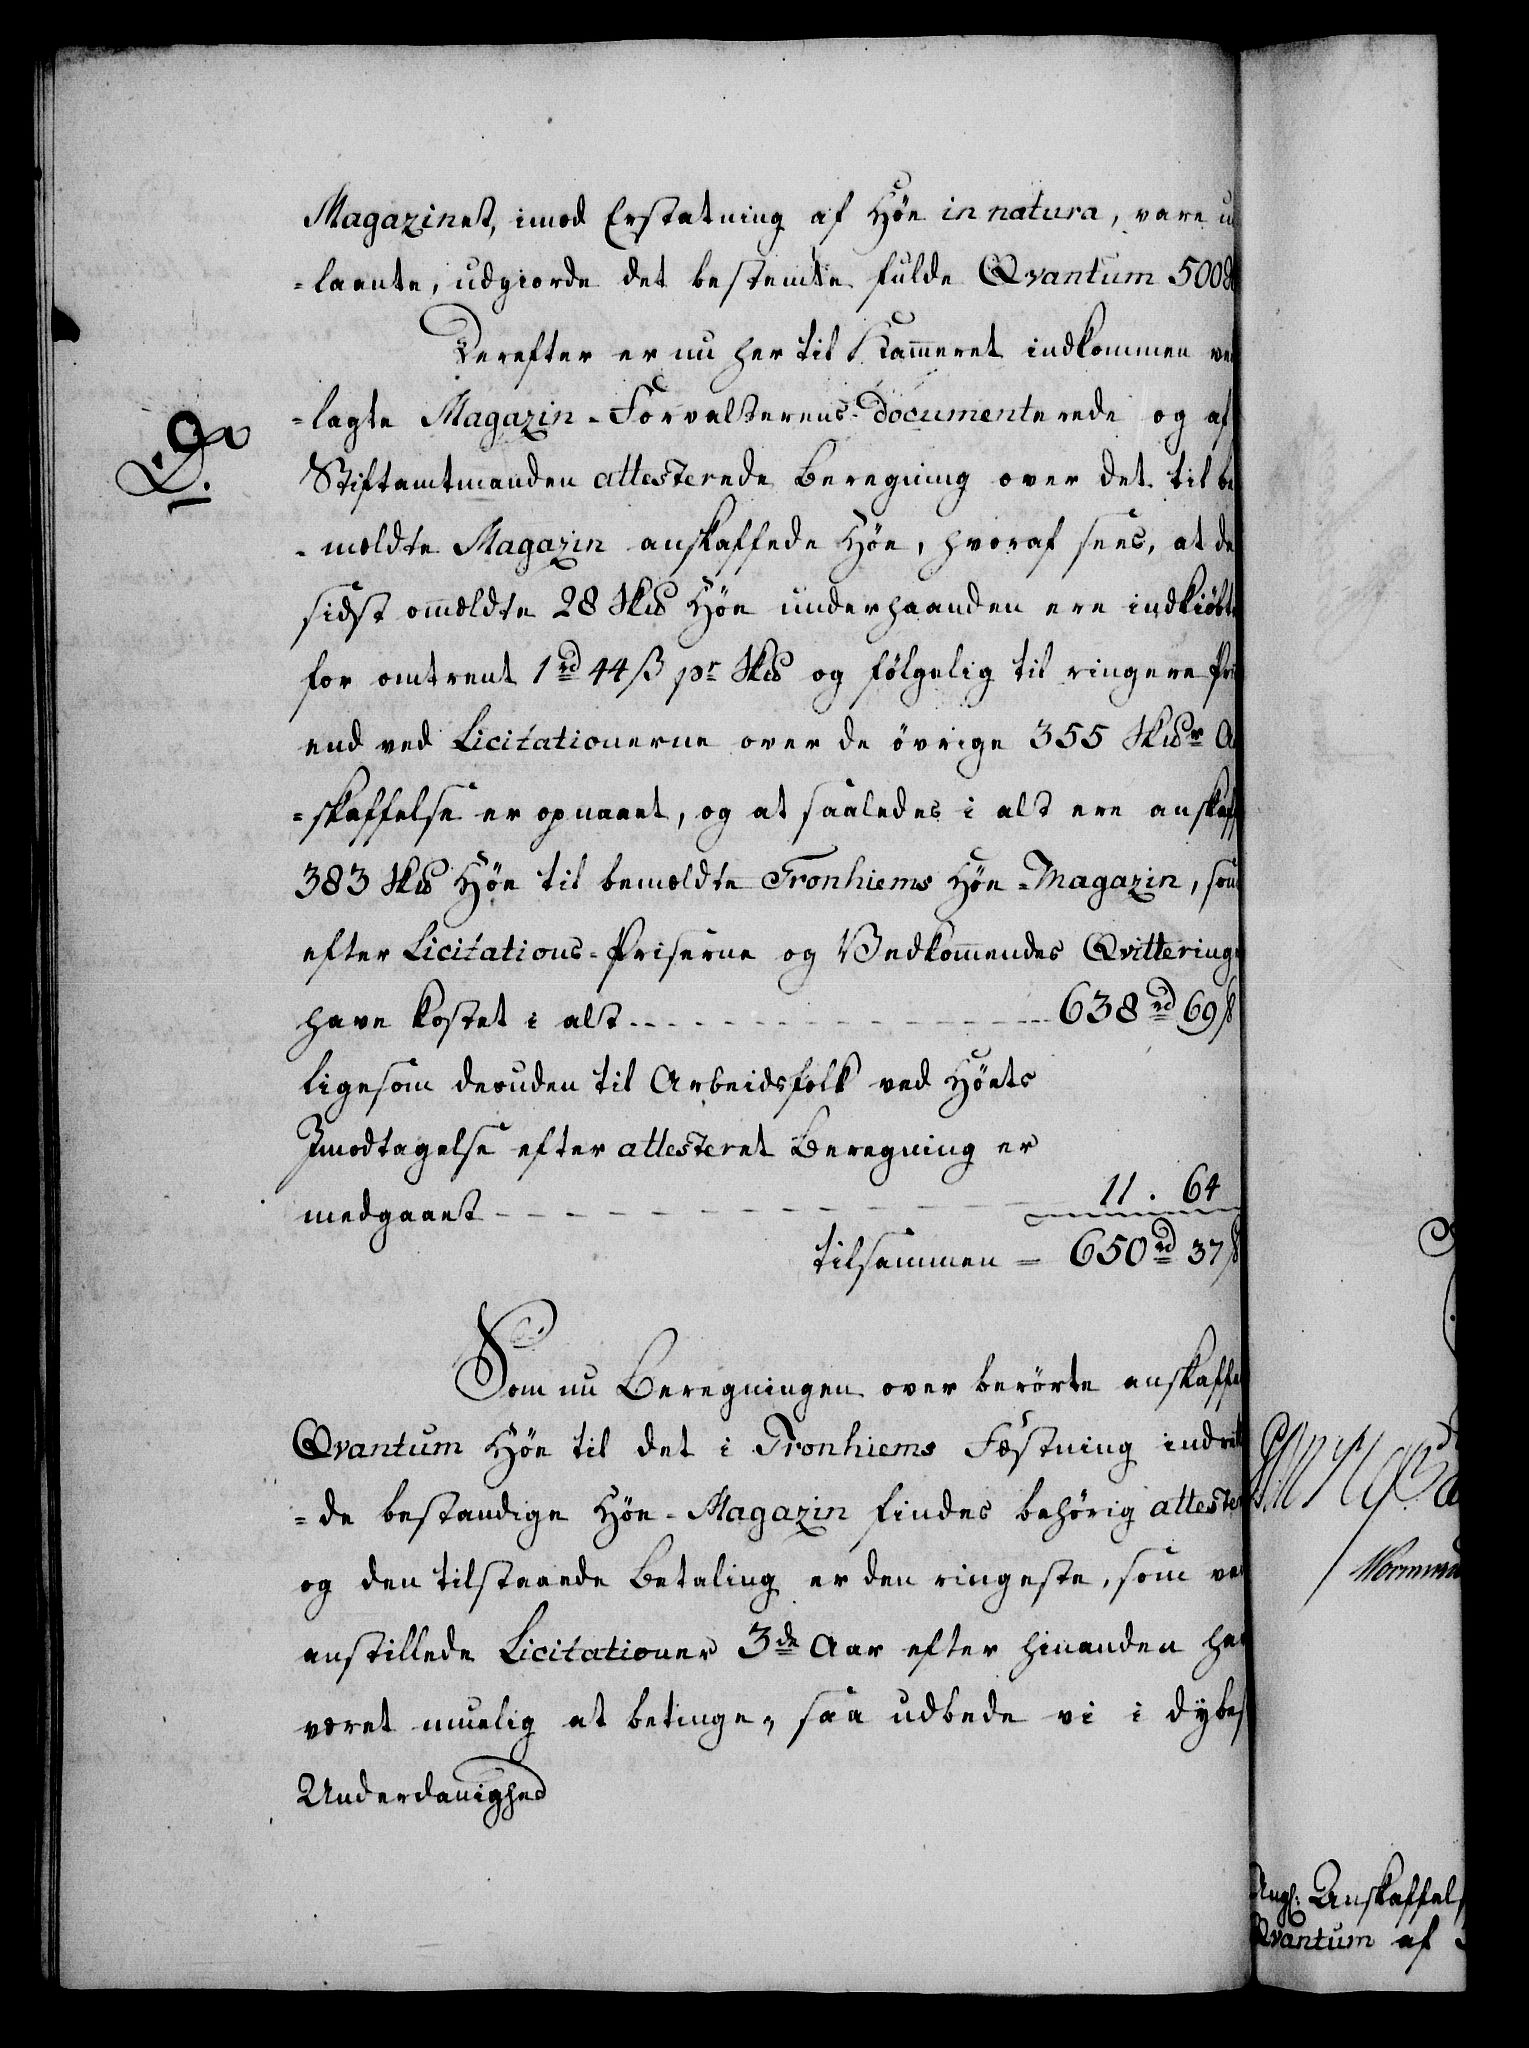 Magazinet, imod Erstatning af Høe in natura, vare u
=laante, udgiorde det bestemte fulde Qvantum 500
Derefter er nu her til Kam̄eret indkommen ve
=lagte Magazin-Forvalterens documenterede og af
D.
Stiftamtmanden attesterede Beregning over det til be
-mældte Magazin anskaffede Høe, hvoraf sees, at de
sidst om̄eldte 28 Sk℔ Høe underhaanden ere indkiöbt
for omtrent 1 rd 44 ß pr Sk℔ og følgelig til ringere Pri
end ved Licitationerne over de övrige 355 Sk℔r A
=skaffelse er opnaaet, og at saaledes i alt ere anskaf
383 Sk℔ Høe til bemældte Tronhiems Høe-Magazin, som
efter Licitations-Priserne og Vedkom̄endes Qvittering
have kostet i alt 638 rd 69 ß
ligesom desuden til Arbeidsfolk ved Høets
Imodtagelse efter attesteret Beregning er
medgaaet 11. 64
tilsammen = 650 rd 37 ß
Som nu Beregningen over berörte anskaffe
Qvantum Høe til det i Tronhiems Fæstning indret
=de bestandige Høe-Magazin findes behörig atteste
og den tilstaaede Betaling er den ringeste, som ve
anstillede Licitationer 3de Aar efter hinanden ha
været muelig at betinge, saa udbede vi i dybes
Underdanighed
Ang: Anskaffels
Qvantum af